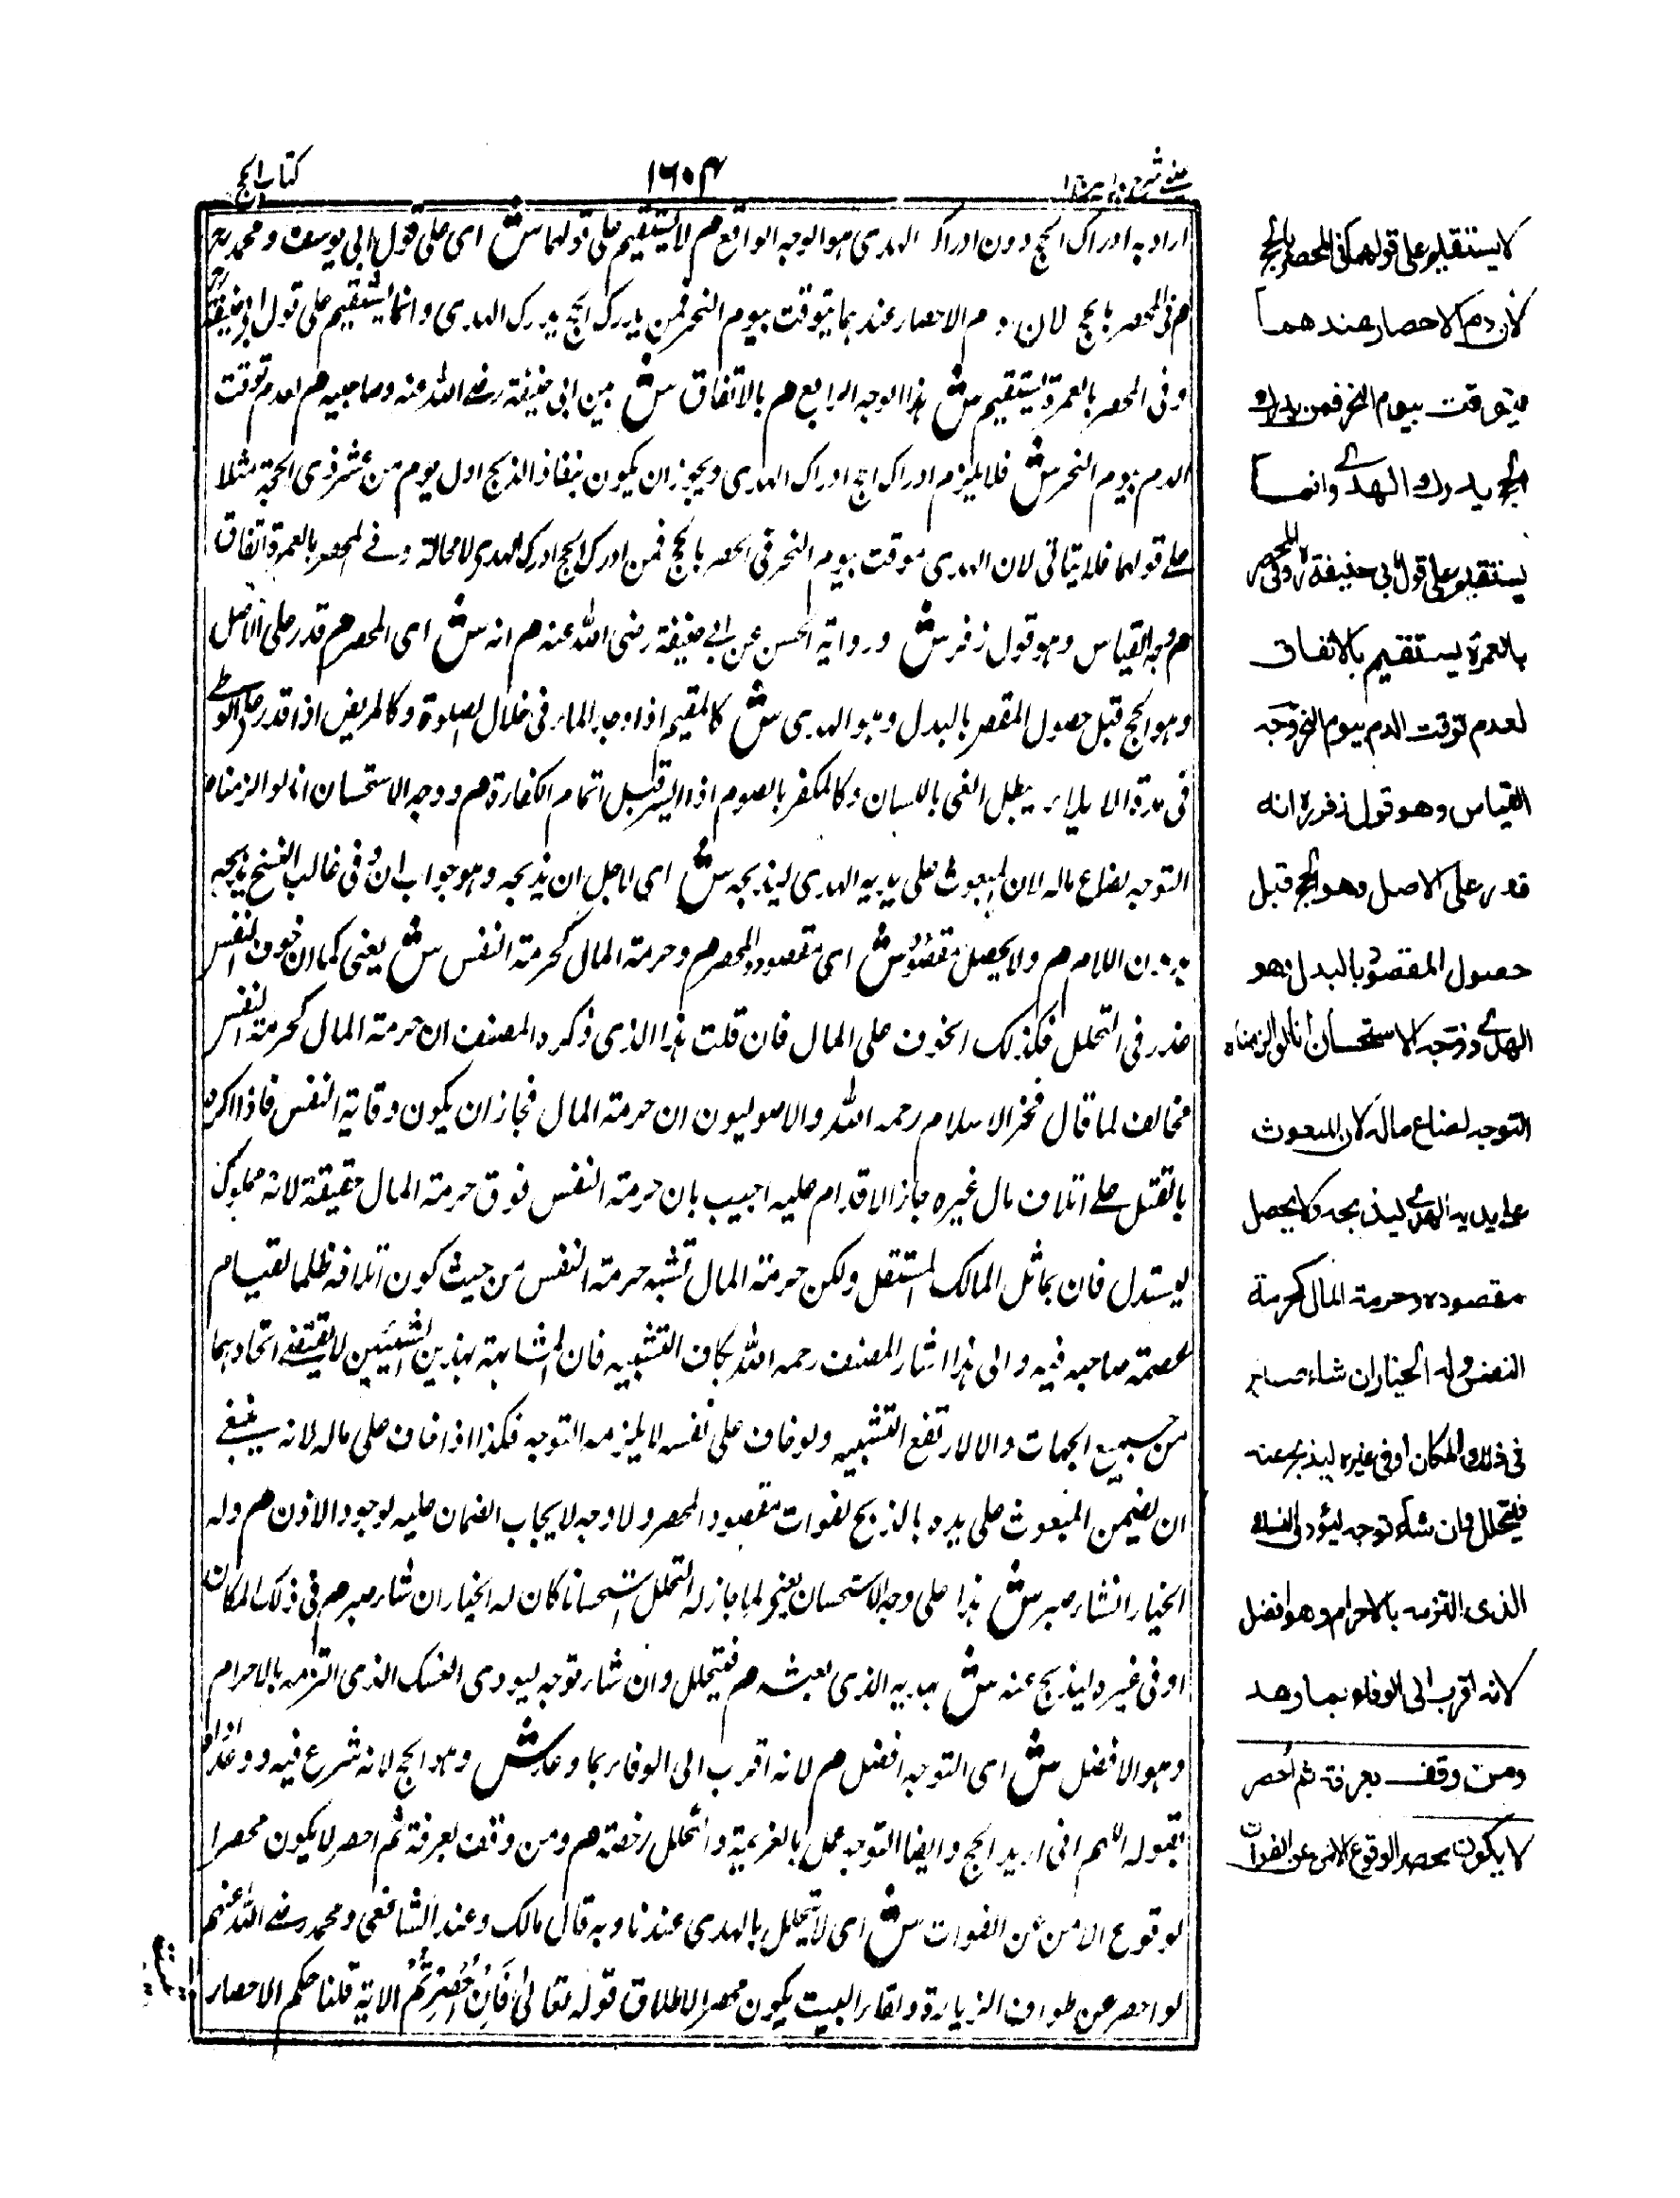 كتاب الحج
١٦٠٤
عيني شرح هداية
اراد به ادراك الحج دون ادراك الهدى هو الوجه الواقع هم لا يستقيم على قولهما ش اى على قول ابى يوسف و محمد رح
هم فى المحصر بالحج لان دم الاحصار عندهما يتوقت بيوم النحر فمن يدرك الحج يدرك الهدى وانما يستقيم على قول ابى حنيفة رح
وفى المحصر بالعمرة يستقيم ش هذا الوجه الرابع هم بالاتفاق ش بين ابى حنيفة رضى الله عنه وصاحبيه هم لعدم توقت
الدم بيوم النحر ش فلا يلزم ادراك الحج ادراك الهدى ويجوز ان يكون بنفاذ الذبح اول يوم من عشر ذى الحجة مثلا
على قولهما فلا يتاتى لان الهدى موقت بيوم النحر فى الحصر بالحج فمن ادرك الحج ادرك الهدى لا محالة وفى المحصر بالعمرة اتفاق
هم وجه القياس وهو قول زفر ش ورواية الحسن عن ابى حنيفة رضى الله عنه هم انه ش اى المحصر هم قدر على الاصل
وهو الحج قبل حصول المقصر بالبدل وهو الهدى ش كالمقيم اذا وجد الماء فى خلال الصلوة وكالمريض اذا قدر على الوطى
فى مدة الايلاء يبطل الفى باللسان وكالمكفر بالصوم اذا ايسر قبل اتمام الكفارة هم ووجه الاستحسان انا لو الزمناه
التوجه لضاع ماله لان المبعوث على يديه الهدى ليذبحه ش اى لاجل ان يذبحه وهو جواب ان وفى غالب النسخ يذبحه
بدون اللام هم ولا يحصل مقصوده ش اى مقصود المحصر هم وحرمة المال كحرمة النفس ش يعنى كما ان خوف النفس
عذر فى التحلل فكذلك الخوف على المال فان قلت هذا الذى ذكره المصنف ان حرمة المال كحرمة النفس
مخالف لما قال فخر الاسلام رحمه الله والاصوليون ان حرمة المال فجاز ان يكون وقاية النفس فاذا اكره
بالقتل على اتلاف مال غيره جاز الاقدام عليه اجيب بان حرمة النفس فوق حرمة المال حقيقة لانه مملوك
يستدل فان بماثل المالك المستقل ولكن حرمة المال تشبه حرمة النفس من حيث كون اتلافه ظلما لقيام
عصمة صاحبه فيه والى هذا اشار المصنف رحمه الله بكاف التشبيه فان المشابهة بهذين الشيئين لا يقتضى اتحادهما
من جميع الجهات والا لارتفع التشبيه ولو خاف على نفسه لا يلزمه التوجه فكذا اذا خاف على ماله لانه ينبغى
ان يضمن المبعوث على يده بالذبح لفوات مقصود المحصر ولا وجه لايجاب الضمان عليه لوجود الاذن هم وله
الخيار انشاء صبر ش هذا على وجه الاستحسان يعنى لما جاز له التحلل استحسانا كان له الخيار ان شاء صبر هم فى ذلك المكان
او فى غيره ليذبح عنه ش هديه الذى بعثه هم فيتحلل وان شاء توجه ليودى النسك الذى التزمه بالاحرام
وهو الافضل ش اى التوجه افضل هم لانه اقرب الى الوفاء بما وعد ش وهو الحج لانه شرع فيه ووعد اداءه
بقوله اللهم انى اريد الحج وايضا التوجه عمل بالعزيمة والتحلل رخصة هم ومن وقف بعرفة ثم احصر لا يكون محصرا
لوقوع الامن عن الفوات ش اى لا يتحلل بالهدى عندنا وبه قال مالك وعند الشافعى ومحمد رضى الله عنهم
لو احصر عن طواف الزيادة ولقاء البيت يكون محصرا لاطلاق قوله تعالى فَاِنْ اُحْصِرْتُمْ الاية قلنا حكم الاحصار
لا يستقيم على قولهما فى المحصر بالحج
لان دم الاحصار عندهما
يتوقت بيوم النحر فمن يدرك
الحج يدرك الهدى وانما
يستقيم على قول ابى حنيفة رح وفى المحصر
بالعمرة يستقيم بالاتفاق
لعدم توقت الدم بيوم النحر وجه
القياس وهو قول زفر رح انه
قدر على الاصل وهو الحج قبل
حصول المقصود بالبدل وهو
الهدى ووجه الاستحسان انا لو الزمناه
التوجه لضاع ماله لان المبعوث
على يديه الهدى ليذبحه ولا يحصل
مقصوده وحرمة المال كحرمة
النفس وله الخيار ان شاء صبر
فى ذلك المكان او فى غيره ليذبح عنه
فيتحلل وان شاء توجه ليؤدى النسك
الذى التزمه بالاحرام وهو افضل
لانه اقرب الى الوفاء بما وعد
ومن وقف بعرفة ثم احصر
لا يكون محصرا لوقوع الامن عن الفوات